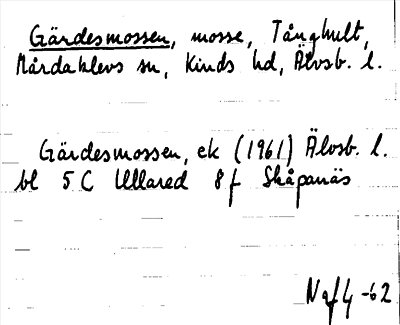 Gärdesmossen, mosse, Tånghult,
Mårdaklevs sn, Kinds hd, Älvsb. l.
Gärdesmossen, ek (1961) Älvsb. l.
bl 5 C Ullared 8 f Skåpanäs
Naf4 -62